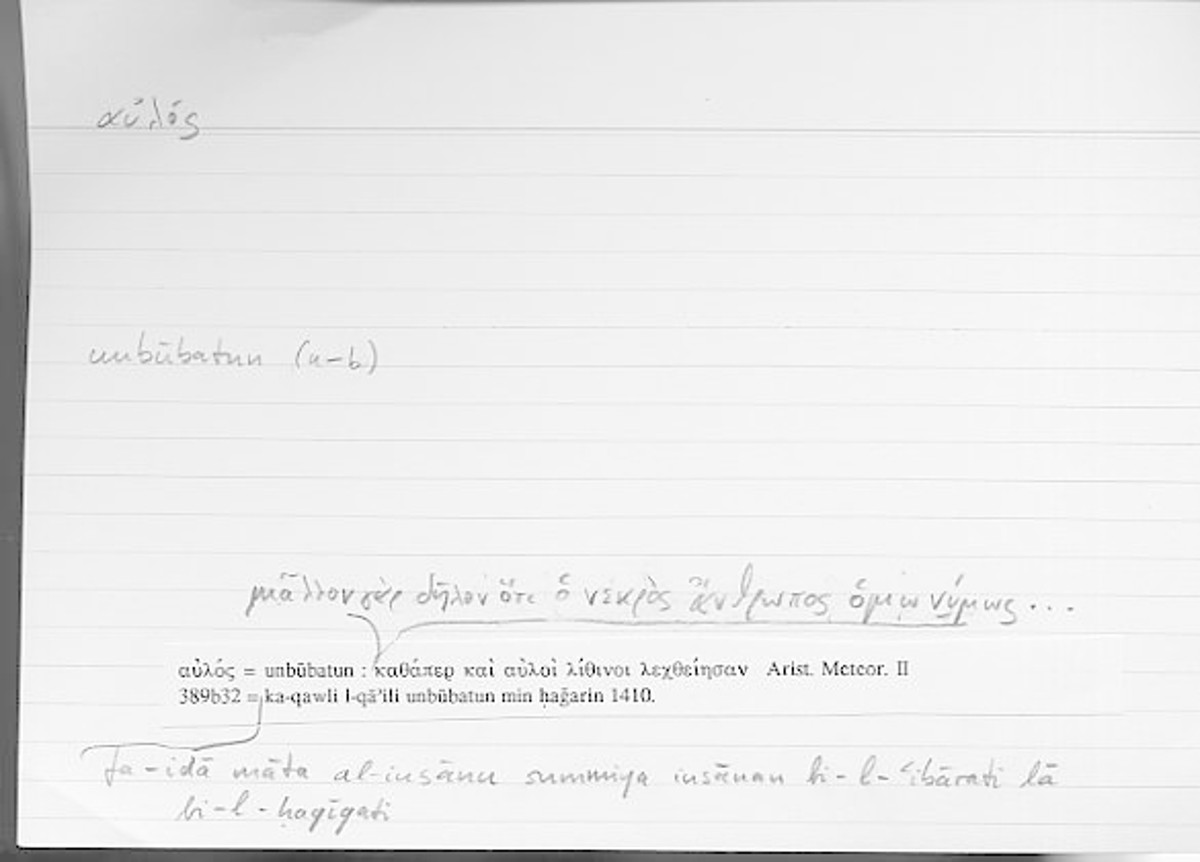 αὐλός
unbūbatun (n-b)
μᾶλλον γὰρ δῆλον ὅτι ὁ νεκρὸς ἄνθρωπος ὁμωνύμως...
αὐλός = unbūbatun : καθάπερ καὶ αὐλοὶ λίθινοι λεχθείησαν Arist. Meteor. II
389b32 = ka-qawli l-qā’ili unbūbatun min ḥaǧarin 1410.
fa-iḏā māta al-insānu summiya insānan bi-l-‘ibārati lā
bi-l-ḥaqīqati